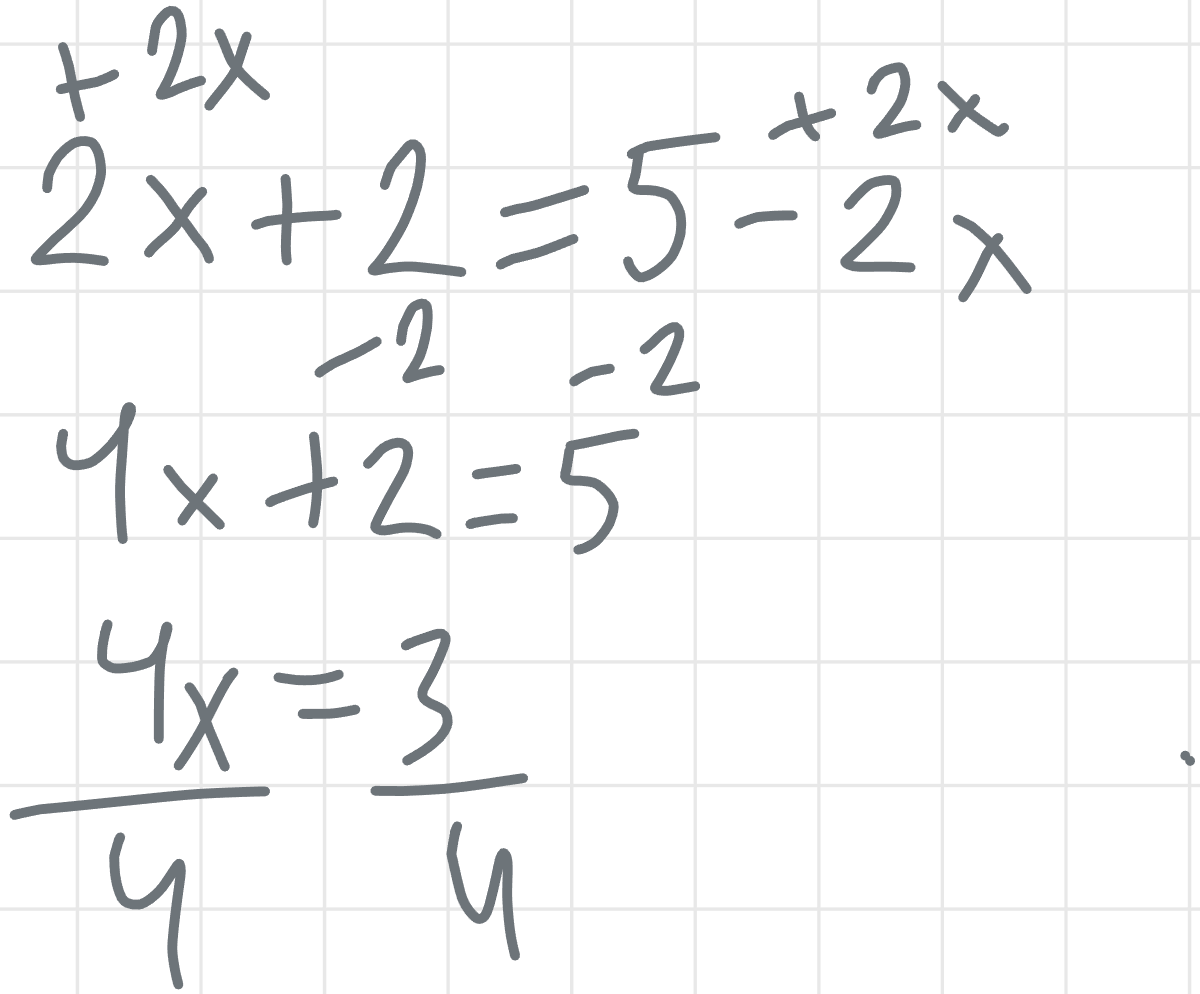 + 2x + 2x
2x + 2 = 5 - 2x
- 2 - 2
4x + 2 = 5
4x = 3
4 4